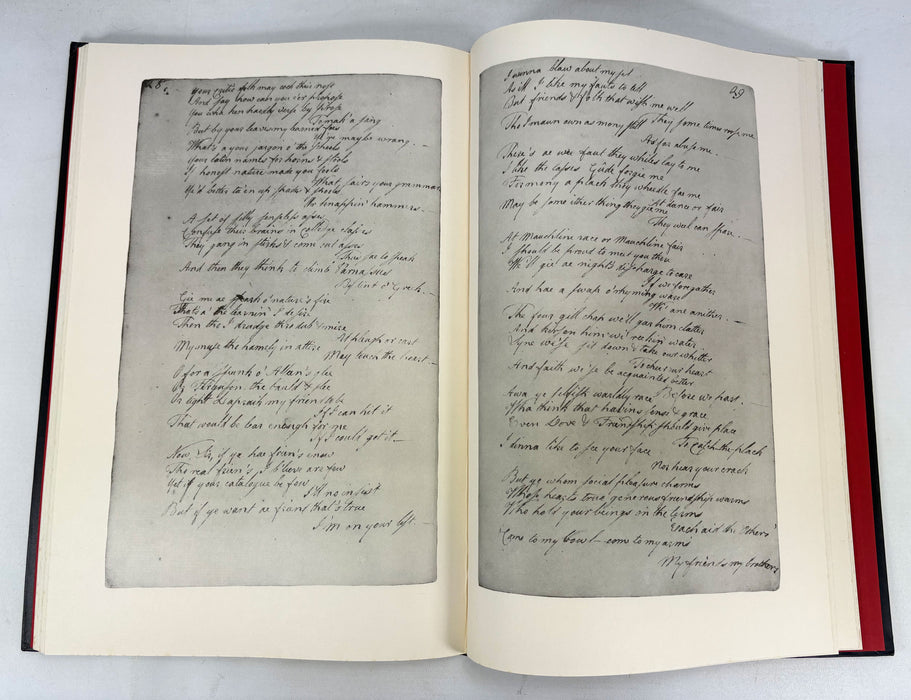 28.
Your critic folk may cock their nose
And say how can you e'er propose
You wha ken hardly verse by prose
To mak a sang
But by your leaves my learned foes
Ye're maybe wrang. —
What's a' your jargon o' the schools
Your latin names for horns & stools
If honest nature made you fools
What sairs your grammar
Ye'd better ta'en up spades & shools
Or knappin hammers. —
A set of silly senseless asses
Confuse their brains in college classes
They gang in stirks & come out asses
Plain sae to speak
And then they think to climb Parnassus
By dint o' Greek. —
Gie me ae spark o' nature's fire
That's a' the learnin' I desire
Then tho' I drudge thro dub & mire
At pleugh or cart
My muse tho' hamely in attire
May touch the heart —
O for a spunk o' Allan's glee
Or Ferguson, the bauld & slee
Or tight Lapraick my friend to be
If I can hit it
That would be lear eneugh for me
If I could get it —
Now, Sir, if ye hae frien's enow
Tho' real frien's I b'lieve are few
Yet if your catalogue be fow
I'll no insist
But if ye want ae frien' that's true
I'm on your list. —
29
I winna blaw about mysel
As ill I like my fauts to tell
But friends & folk that wish me well
They sometimes roose me
Tho I maun own as mony still
As far abuse me. —
There's ae wee faut they whiles lay to me
I like the lasses Gude forgie me
For mony a plack they wheedle frae me
At dance or fair
May be some ither thing they gie me
They weel can spare. —
At Mauchline race or Mauchline fair
I should be proud to meet you there
We'll gie ae night's discharge to care
If we forgather
And hae a swap o' rhyming ware
Wi' ane anither. —
The four gill chap we'll gar him clatter
And kirs'en him wi' reekin water
Syne we'll sit down & take our whitter
To chear our heart
And faith we'se be acquainted better
Before we part. —
Awa ye selfish warldly race
Wha think that havins, sense & grace
Even Love & Friendship should give place
To catch the plack
I dinna like to see your face
Nor hear your crack
But ye whom social pleasure charms
Whose hearts true generous friendship warms
Who hold your beings on the terms
Each aid the others'
Come to my bowl — come to my arms
My friends my brothers